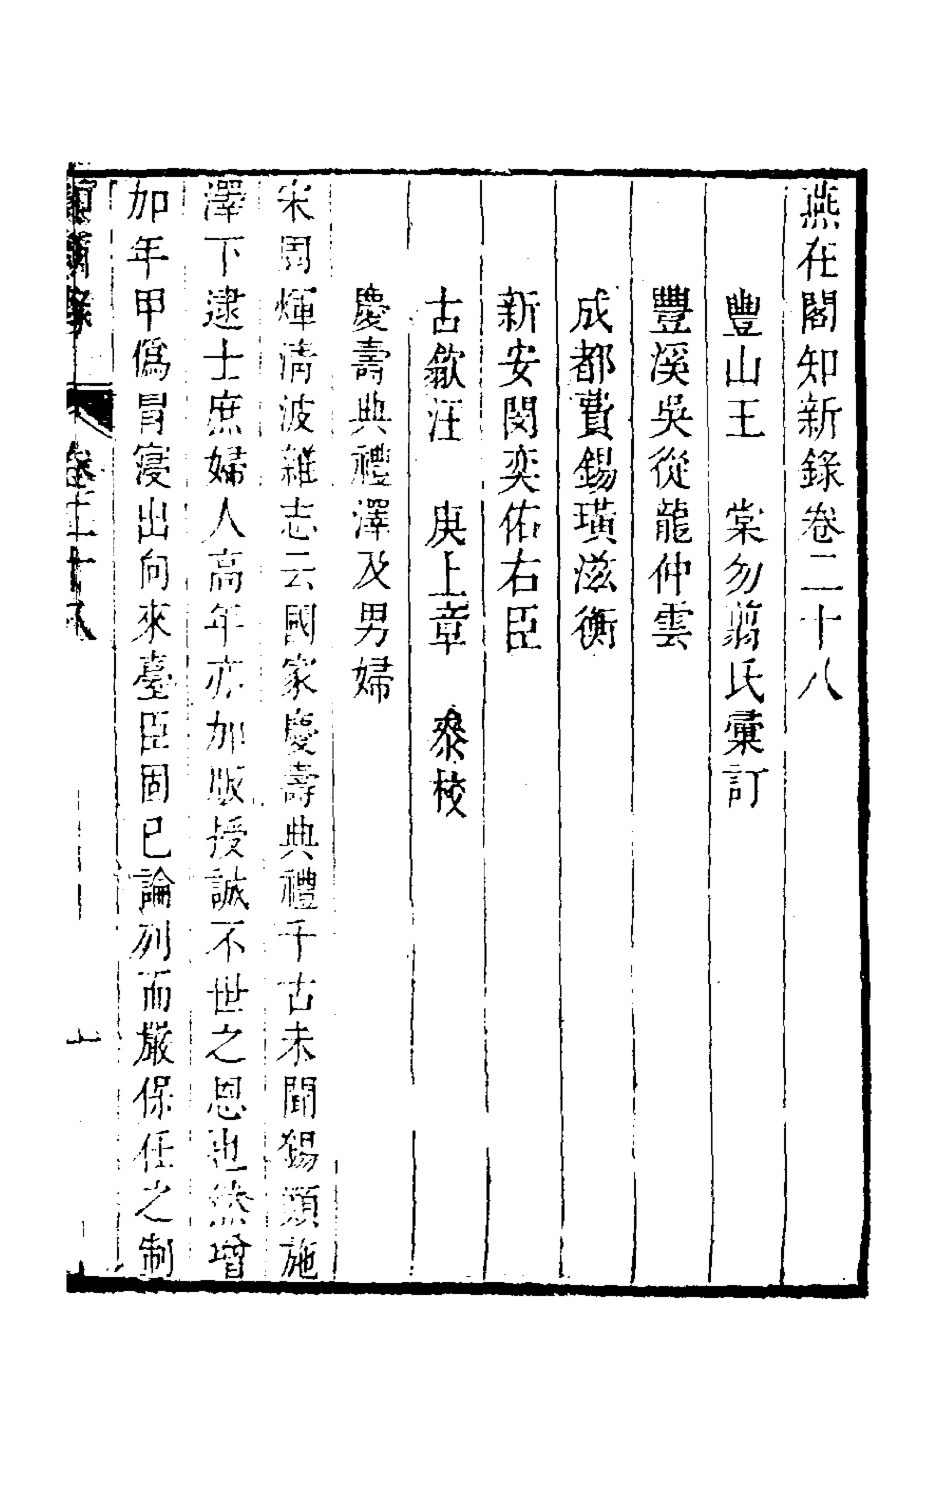 燕在閣知新錄卷二十八
豐山王　棠勿翦氏彙訂
豐溪吳從龍仲雲
成都費錫璜滋衡
新安閔奕佑右臣
古歙汪　庚上章　叅校
慶壽典禮澤及男婦
宋周煇淸波雜志云國家慶壽典禮千古未聞錫類施
澤下逮士庶婦人高年亦加版授誠不世之恩也然增
加年甲僞冒寖出向來臺臣固已論列而嚴保任之制
知新錄　卷二十八　一